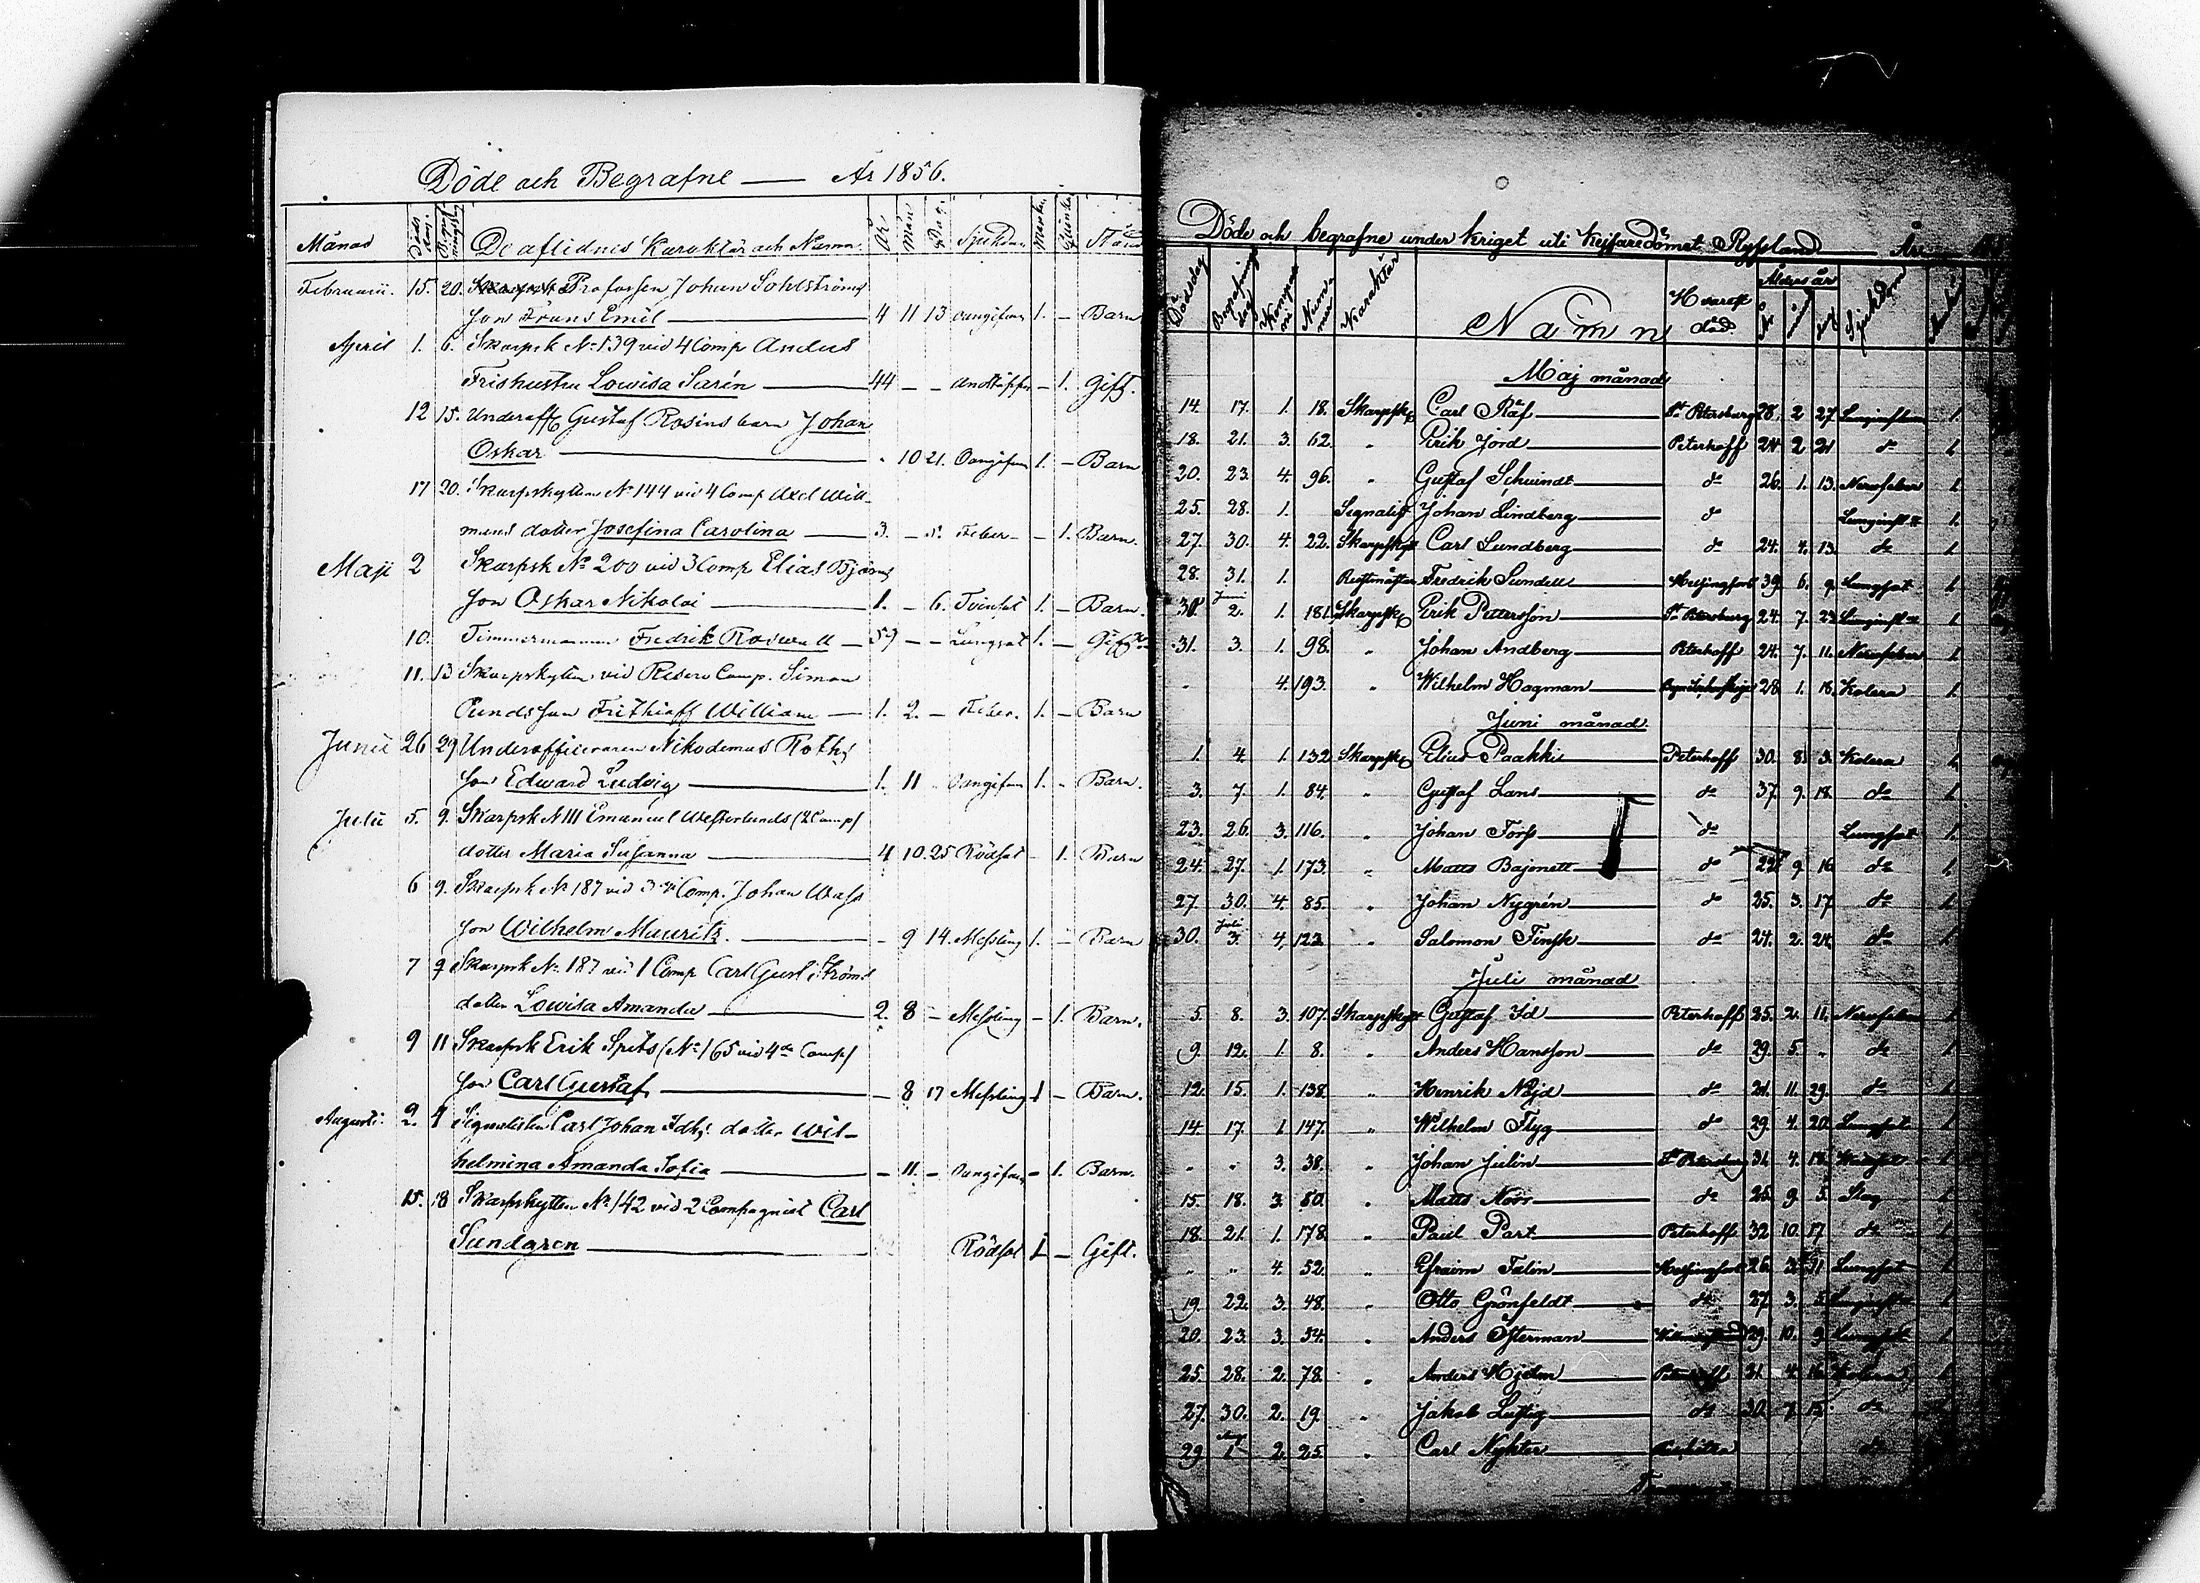 Döde och Begrafne — År 1856.
Månad Döds dag. Begrafningsdag De aflidnes Karaktär och Namn. År Mån Dag. Sjukdom Mankön Qvinkön Stånd
Februarii. 15. 20. Profossen Johan Sohlströms
son Frans Emil — 4 11 13 oangifven 1. – Barn
April 1. 6. Skarpsk No 139 vid 4 Comp Anders
Fris hustru Lowisa Sarén — 44 – – – 1. Gift.
12 15. Underoff Gustaf Rosins barn Johan
Oskar — . 10 21. Oangifven 1. – Barn
17 20. Skarpskytten No 144 vid 4 Comp Axel Will-
mans dotter Josefina Carolina — 3. – 5. Feber – – 1. Barn.
Maji 2 Skarpsk No 200 vid 3 Comp Elias Björns
son Oskar Nikolai — 1. – 6. Tvinsot 1. – Barn.
10. Timmermannen Fredrik Roswall — 59 – – Lungsot 1. – Gift
11. 13 Skarpskytten vid Reserv Comp. Simon
Punds son Frithioff William — 1. 2. – Feber. 1. – Barn
Junii 26 29 Underofficeraren Nikodemus Roths
son Edward Ludvig — 1. 11 . Oangifven 1. – Barn.
Julii 5. 9. Skarpsk N 111 Emanuel Westerlunds (2 Comp)
dotter Maria Susanna — 4 10. 25 Rödsot – 1. Barn
6 9. Skarpsk No 187 vid 3 Comp. Johan
son Wilhelm Mauritz. — – 9 14. Messling 1. – Barn
7 9 Skarpsk No 187 vid 1 Comp Carl Gust. Ströms
dotter Lowisa Amanda — 2. 8 – Messling – 1. Barn.
9 11 Skarpsk Erik Spets (No 165 vid 4de Comp)
son Carl Gustaf — – 8 17 Messling 1 – Barn.
Augusti. 2. 4 Signalisten Carl Johan dotter Wil-
helmina Amanda Sofia — – 11. – Oangifven – 1. Barn.
15. 18 Skarpskytten No 142 vid 2 Compagniet Carl
Sundgren — Rödsot 1 – Gift.
Döde och begrafne under kriget uti Kejsaredömet Ryssland — År
Dödsdag Begrafningsdag Kompani Nummer Karaktär Namn Hvarest död. Ålders år År mån dag Sjukdom
Maj månad
14. 17. 1. 18. Skarpsk Carl Räf — St Petersburg 28. 2 27 Lunginflam 1.
18. 21. 3. 62. „ Erik Jord — Peterhoff 24 2 21 do 1.
20. 23. 4. 96. „ Gustaf Schwindt — do 26. 1. 13. Nervfeber 1.
25. 28. 1. Signalist Johan Lindberg — do Lunginfl 1.
27. 30. 4. 22. Skarpskyt Carl Lundberg — do 24. 4. 13. do 1.
28. 31. 1. Rustmästar Fredrik Sundell — Helsingfors 39. 6. 9 Lungsot 1.
30. Juni 2. 1. 181. Skarpsk Erik Pettersson — St Petersburg 24. 7. 23 Lunginfl 1.
31. 3. 1. 98. „ Johan Andberg — Peterhoff 24. 7. 11. Nervfeber 1.
„ 4. 193. „ Wilhelm Hagman — 28 1. 18. Kolera 1.
Juni månad
1. 4. 1. 132 Skarpsk Elias Paakki — Peterhoff 30. 8. 3. Kolera 1.
3. 7. 1. 84. „ Gustaf Lans — do 37. 9. 18. do 1.
23. 26. 3. 116. „ Johan Torp — do Lungsot 1.
24. 27. 1. 173. „ Matts Bajonett — do 22 9 16 do 1.
27. 30. 4. 85. „ Johan Nygrén — do 25. 3. 17 do 1.
30. Juli 3. 4. 123. „ Salomon Finsk — do 24. 2. 24. do 1.
Juli månad
5. 8. 3. 107. Skarpskyt Gustaf Id — Peterhoff 25. 2. 11. Nervfeber 1.
9. 12. 1. 8. „ Anders Hansson — do 29. 5. „ do 1.
12. 15. 1. 138. „ Henrik Nöjd — do 21. 11. 29. do 1.
14. 17. 1 147. „ Wilhelm Flyg — do 29. 4. 20. Lungsot 1.
„ „ 3. 38. „ Johan Julin — St Petersburg 31. 4. 18. 1.
15. 18. 3. 80. „ Matts Norr — do 26. 9. 5. Slag 1.
18. 21. 1. 178. „ Paul Part — Peterhoff 32 10. 17 do 1.
„ „ 4. 52. „ Efraim Falin — Helsingfors 26. 3. 11 Lungsot 1.
19. 22. 3. 48. „ Otto Grönfeldt — do 27. 3. 5. Lunginfl 1.
20. 23. 3. 54. „ Anders Österman — 29. 10. 9. Lungsot 1.
25. 28. 2. 78. „ Anders Hjelm — Peterhoff 31. 4. 16. Kolera 1.
27. 30. 2. 19. „ Jakob Luftig — do 30. 7. 15. do
29. Aug. 1. 2. 25. „ Carl Nykter — do